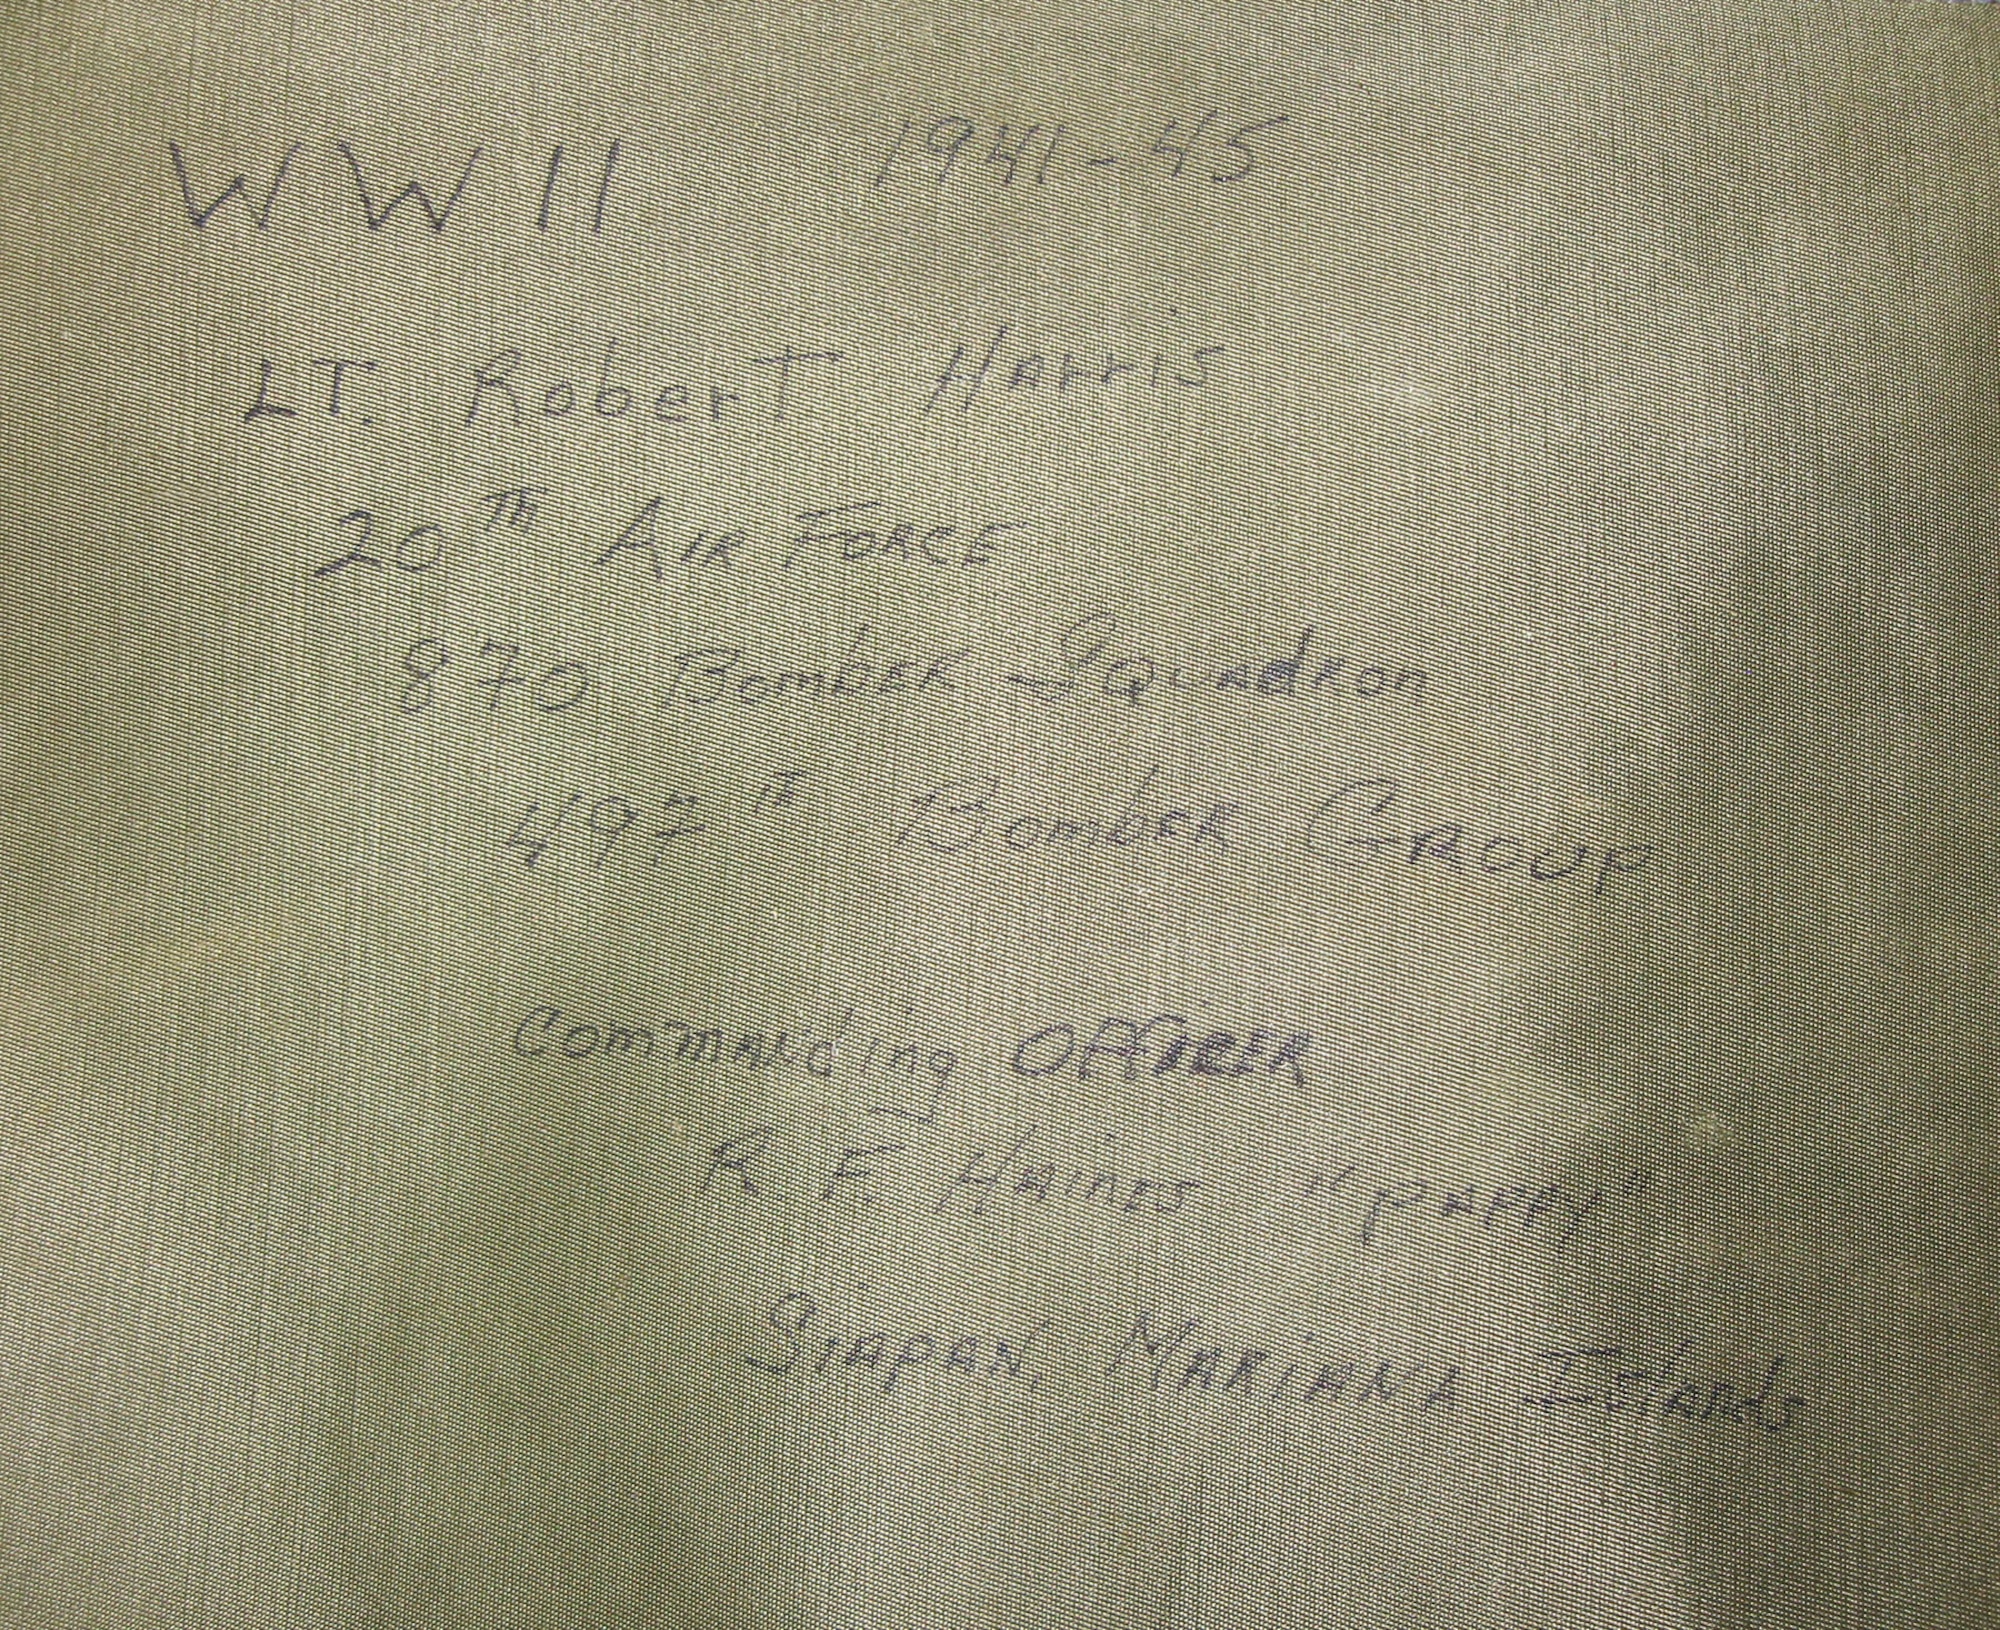 WW II 1941-45
LT. Robert Harris
20TH AIR FORCE
870 Bomber Squadron
497TH Bomber GROUP
Commanding OFFICER
R. F. Haines "PAPPY"
SiAPAN, MARiANA Islands